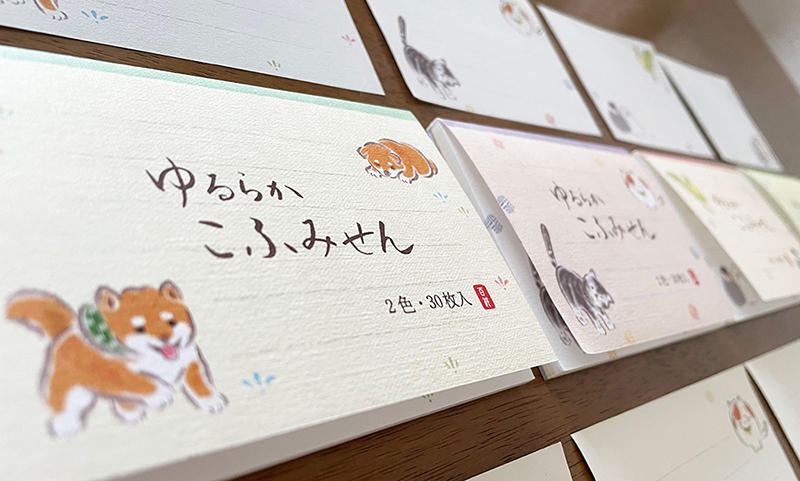 ゆるらか
こふみせん
2色・30枚入
ゆるらか
こふみせん
2色・30枚入